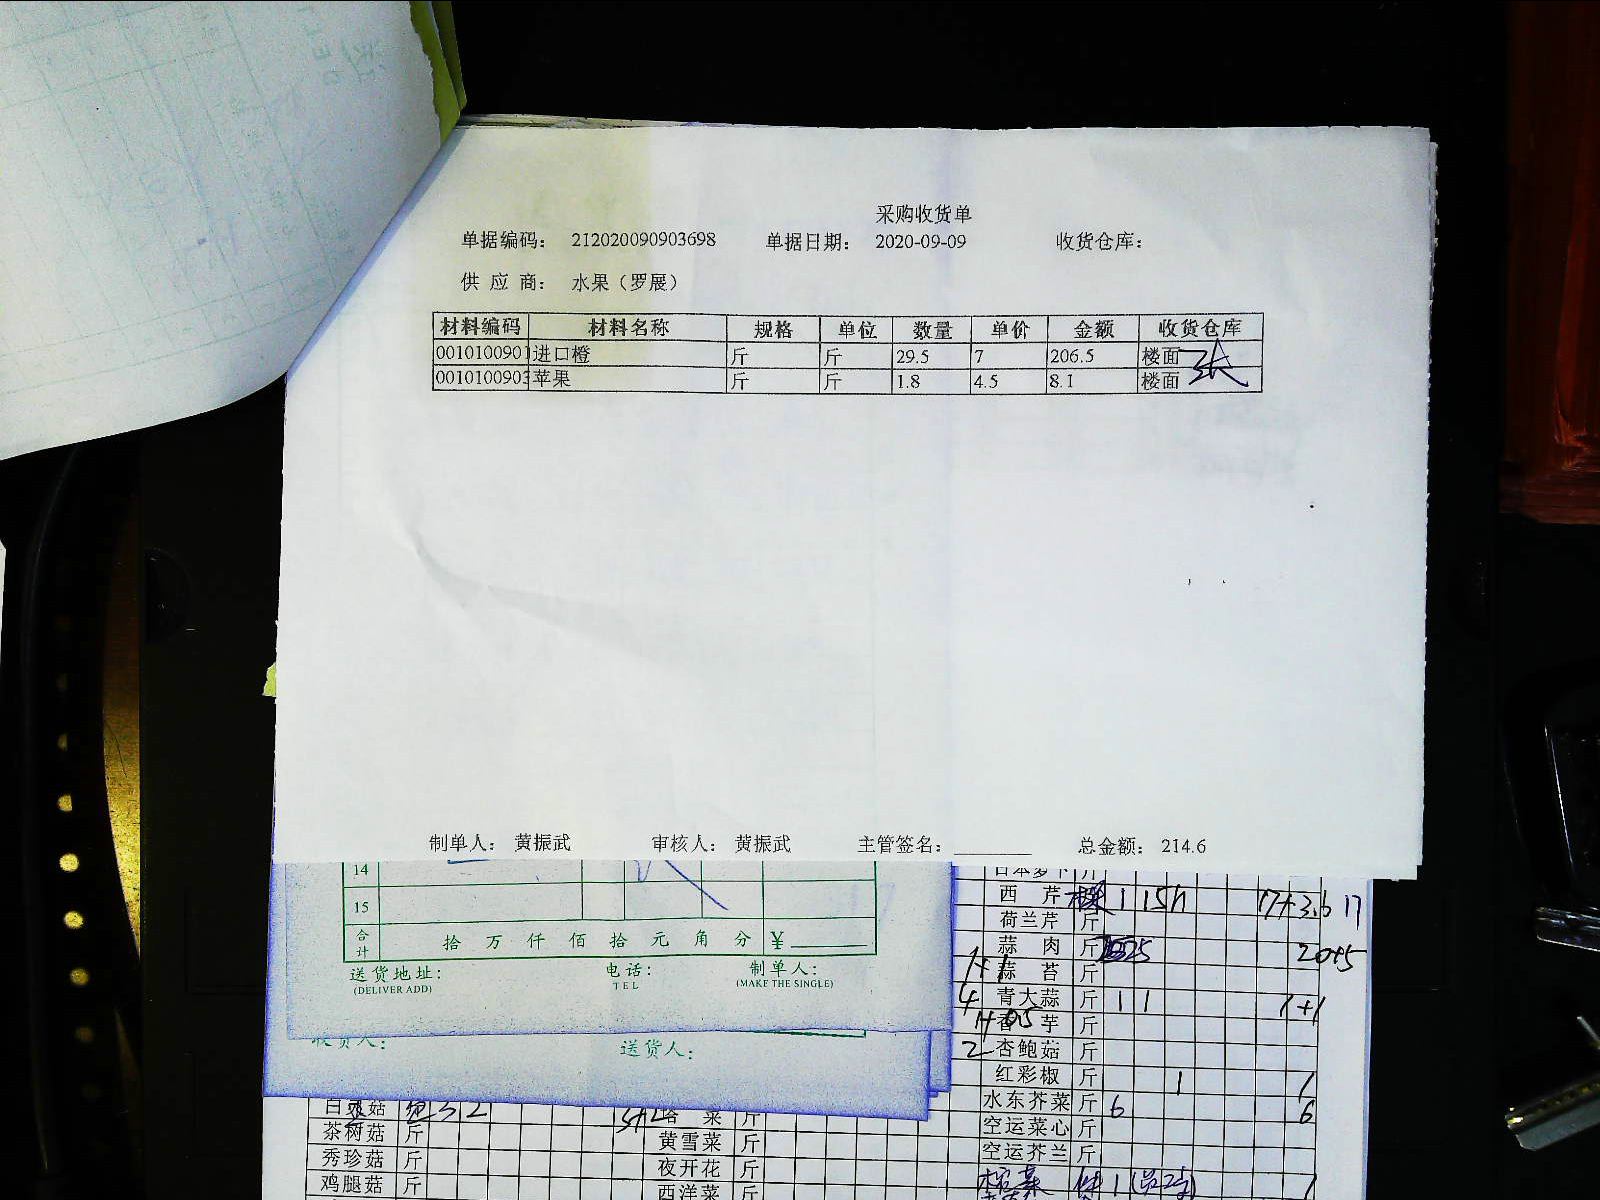 采购收货单
单据编码： 212020090903698 单据日期： 2020-09-09 收货仓库：
供 应 商： 水果（罗展）
材料编码 材料名称 规格 单位 数量 单价 金额 收货仓库
0010100901 进口橙 斤 斤 29.5 7 206.5 楼面
0010100903 苹果 斤 斤 1.8 4.5 8.1 楼面
制单人： 黄振武 审核人： 黄振武 主管签名： 总金额： 214.6
14
15
合计 拾 万 仟 佰 拾 元 角 分 ¥
送货地址： 电话： 制单人：
(DELIVER ADD) TEL (MAKE THE SINGLE)
送货人：
西 芹 1 17+3.6 17
荷兰芹 斤
蒜 肉 斤
蒜 苔 斤
4 青大蒜 斤 1 1 1+1
香 芋 斤
2 杏鲍菇 斤
红彩椒 斤 1 1
水东芥菜 斤 6 6
空运菜心 斤
空运芥兰 斤
茶树菇 斤
秀珍菇 斤
鸡腿菇 斤
菜 斤
黄雪菜 斤
夜开花 斤
西洋菜 斤